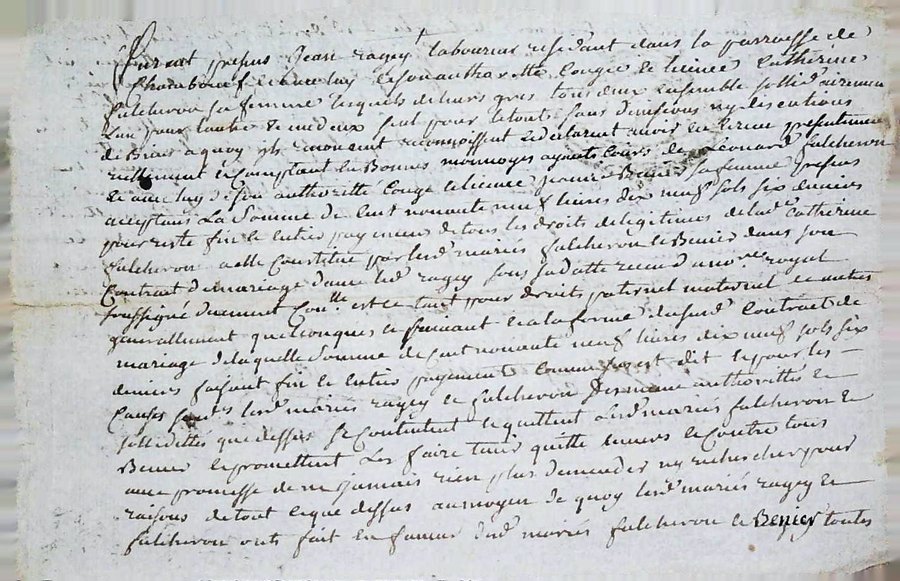 furent presens Jean ragey laboureur residant dans la parroisse de
Charbonel et avec luy et son authorette Congé et licence Catherine
falcheron sa femme lesquels de leurs gres tous deux ensemble sollidairement
l'un pour lautre et un deux seul pour le tout sans divisions ny discutions
de Biens a quoy ils renoncent reconnoissent et declarent avoir eu et receu presentement
reellement et Comptant en Bonnes monnoyes ayants Cours de Leonard falcheron
et avec luy de son authorette Conge et licence Benier sa femme presens
acceptans La Somme de Cent nonante neuf livres dix neuf sols six deniers
pour reste fin et entier payement de tous les droits de legitimes de lad. Catherine
falcheron a elle Constitué par lesd. mariés falcheron et Benier dans son
Contrat de mariage dans led. ragey sous sa datte receu du no.re royal
soussigné duement Con.llé est ce tant pour droits paternel maternel et autres
generallement quelconques et suivant et a la forme dususd. Contract de
mariage de laquelle Somme de Cent nonante neuf livres dix neuf sols six
deniers faisant fin et entier payement Comme est dit et pour les
Causes sud.es lesd. mariés ragey et falcheron femme authorittés et
sollidittés que dessus se Contentent et quittent lesd. mariés falcheron et
Benier et promettent Les faire tenir quitte envers et Contre tous
avec promesse de ne jamais rien plus demander ny rechercher pour
raisons de tout ce que dessus au moyen de quoy lesd. mariés ragey et
falcheron onts fait en faveur desd. mariés falcheron et Benier toutes